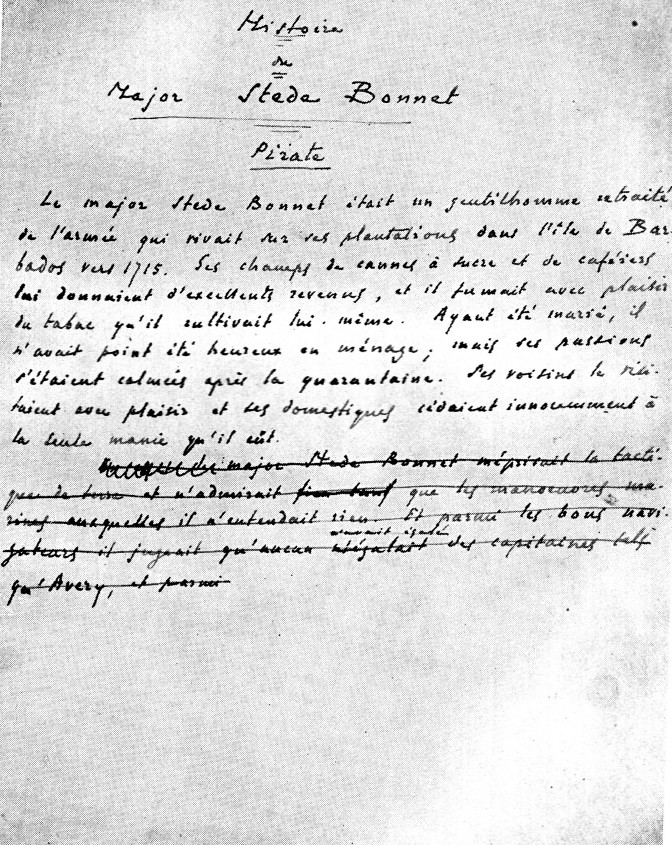 Histoire
du
Major Stede Bonnet
Pirate
Le major Stede Bonnet était un gentilhomme retraité
de l'armée qui vivait sur ses plantations dans l'île de Bar
bados vers 1715. Ses champs de cannes à sucre et de caféiers
lui donnaient d'excellents revenus, et il fumait avec plaisir
du tabac qu'il cultivait lui-même. Ayant été marié, il
n'avait point été heureux en ménage; mais ses passions
s'étaient calmées après la quarantaine. Ses voisins le visi-
taient avec plaisir et ses domestiques cédaient innocemment à
la seule manie qu'il eût.
major Stede Bonnet méprisait la tacti-
que de terre et n'admirait que les manoeuvres ma-
rines auxquelles il n'entendait rien. Et parmi les bons navi-
n'avait égalé
gateurs il jugeait qu'aucun n'égalait des capitaines tels
qu'Avery, et parmi